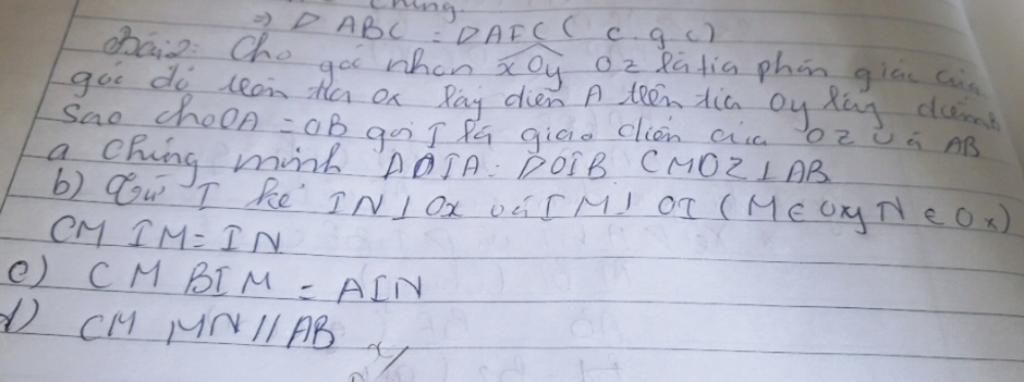 chứng
=> D ABC = DAFC ( c.g.c)
Bài 2: Cho góc nhọn xOy Oz là tia phân giác của
góc đó trên tia Ox lấy diên A trên tia Oy lấy điểm b
Sao choOA = OB gọi I là giao diên của OZ và AB
a Chứng minh DOIA = DOIB CMOZ ⊥ AB
b) Từ I kẻ IN ⊥ Ox và IM ⊥ OI ( M ∈ Oxy N ∈ Ox)
CM IM = IN
c) CM BIM = AIN
d) CM MN // AB